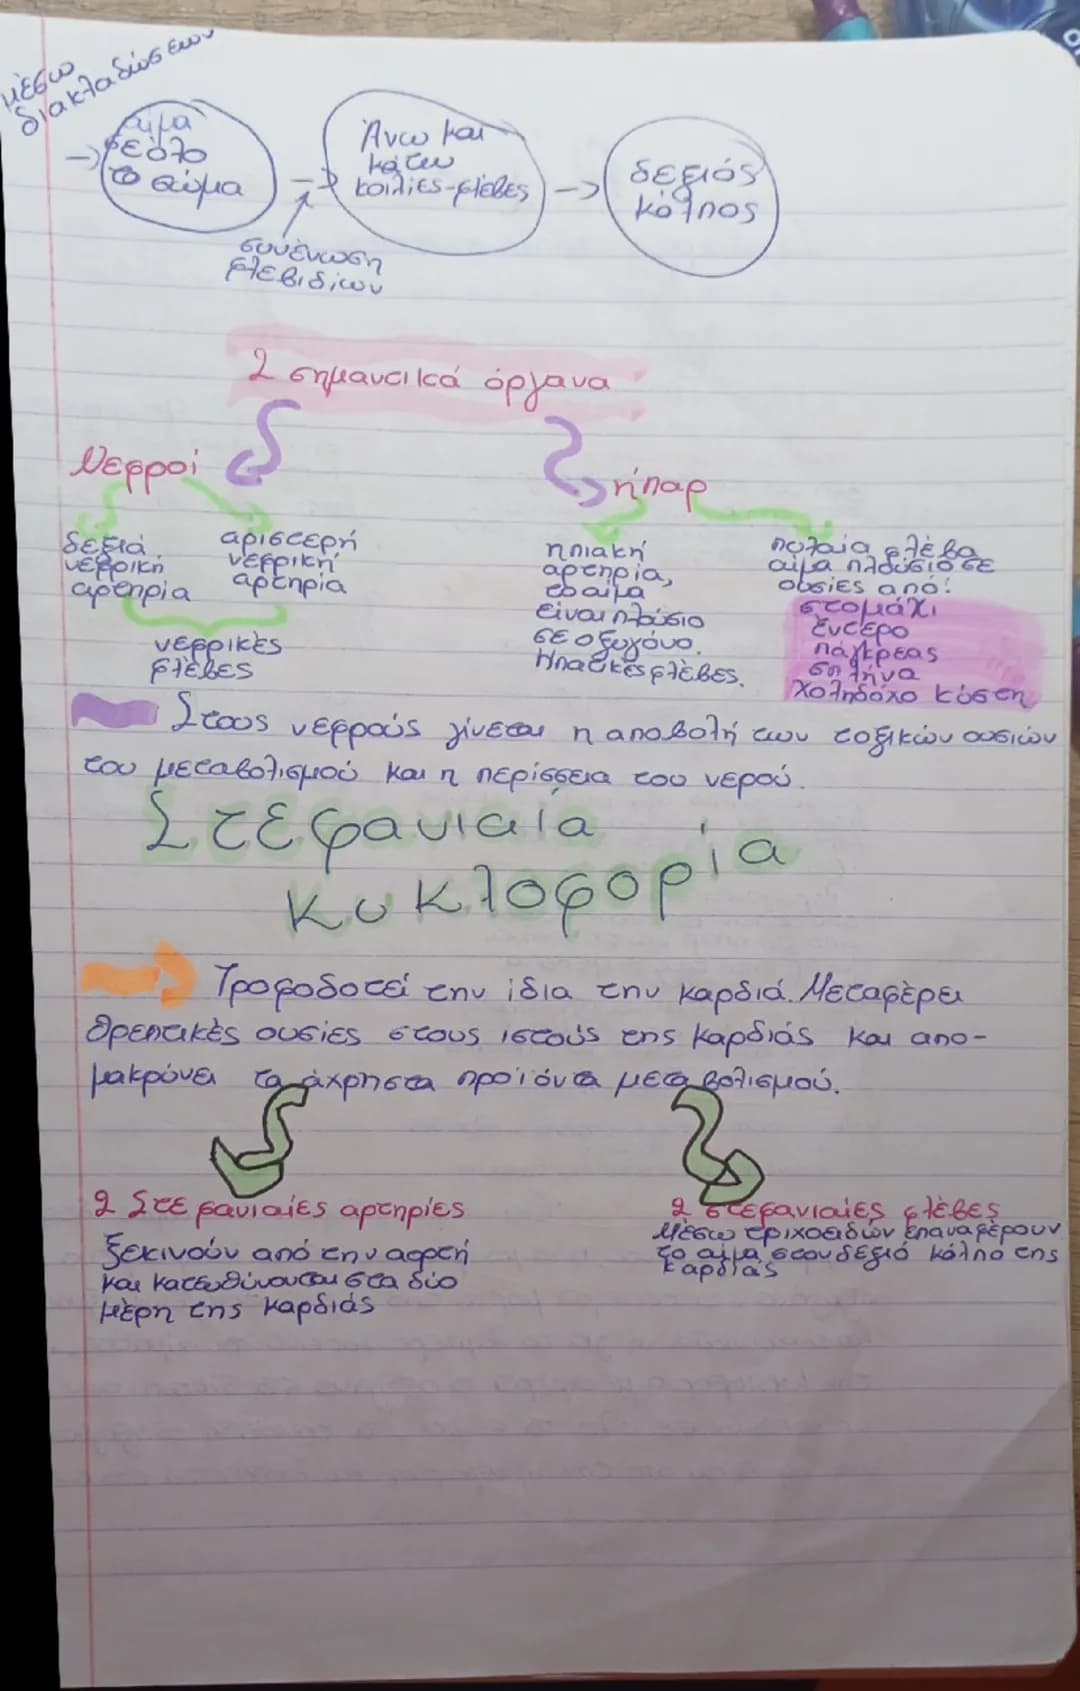 μέσω
διακλαδώσεων
→ αίμα
σε όλο
το σώμα
→
συνένωση
φλεβιδίων
Άνω και
κάτω
κοιλίες-φλέβες
→ δεξιός
κόλπος
2 σημαντικά όργανα
Νεφροί
ήπαρ
δεξιά
νεφρική
αρτηρία
αριστερή
νεφρική
αρτηρία
νεφρικές
φλέβες
ηπιακή
αρτηρία,
το αίμα
είναι πλούσιο
σε οξυγόνο.
Ηπατικές φλέβες.
πυλαία φλέβα
αίμα πλούσιο σε
ουσίες από:
στομάχι
έντερο
πάγκρεας
σπλήνα
χοληδόχο κύστη
Στους νεφρούς γίνεται η αποβολή των τοξικών ουσιών
του μεταβολισμού και η περίσσεια του νερού.
Στεφανιαία
κυκλοφορία
Τροφοδοτεί την ίδια την καρδιά. Μεταφέρει
θρεπτικές ουσίες στους ιστούς της καρδιάς και απο-
μακρύνει τα άχρηστα προϊόντα μεταβολισμού.
2 Στεφανιαίες αρτηρίες
ξεκινούν από την αορτή
και κατευθύνονται στα δύο
μέρη της καρδιάς
2 στεφανιαίες φλέβες
Μέσω τριχοειδών επαναφέρουν
το αίμα στον δεξιό κόλπο της
καρδιάς